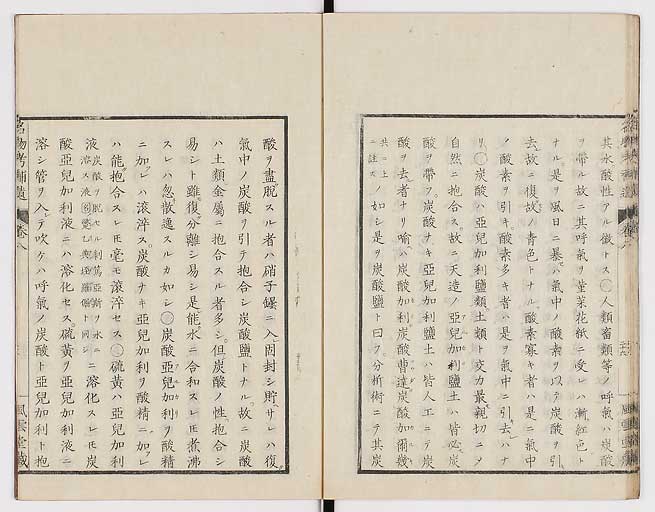 其水酸性アル徴トス〇人類畜類等ノ呼氣ハ炭酸
ヲ帶ル故ニ其呼氣ヲ菫菜花紙ニ受レハ漸紅色ト
ナル是ヲ風日ニ暴ハ氣中ノ酸素ヲ以テ炭酸ヲ引
去故ニ復故ノ青色トナル酸素寡キ者ハ是ニ氣中
ノ酸素ヲ引キ酸素多キ者ハ是ヲ氣中ニ引去ハナ
リ〇炭酸ハ亞兒加利鹽類土類ト交力最親切ニメ
自然ニ抱合ス故ニ天造ノ亞兒加利鹽土ハ皆必炭
酸ヲ帶フ炭酸ナキ亞兒加利鹽土ハ皆人工ニテ炭
酸ヲ去者ナリ喩ハ炭酸加利炭酸曹達炭酸加爾幾
共ニ上ニ註ス ノ如シ是ヲ炭酸鹽ト曰フ分析術ニテ其炭
酸ヲ盡脱スル者ハ硝子罎ニ入固封シ貯サレハ復
氣中ノ炭酸ヲ引テ抱合シ炭酸鹽トナル故ニ炭酸
ハ土類金屬ニ抱合スル者多シ但炭酸ノ性抱合シ
易シト雖復分離シ易シ是能水ニ合和スレ𪜈煮沸
スレハ忽散逸スルカ如シ〇炭酸亞兒加利ヲ酸精
ニ加レハ滾滓ス炭酸ナキ亞兒加利ヲ酸精ニ加レ
ハ能抱合スレ𪜈毫モ滾滓セス〇硫黄ハ亞兒加利
液 ニ溶化スレ𪜈炭
酸亞兒加利液ニハ溶化セス硫黄ヲ亞兒加利液ニ
溶シ管ヲ入テ吹ケハ呼氣ノ炭酸ト亞兒加利ト抱
名物考補遺 卷八
風雲堂藏